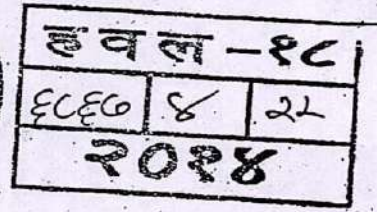 हवल -१८
६८६७ ४ २२
२०१४